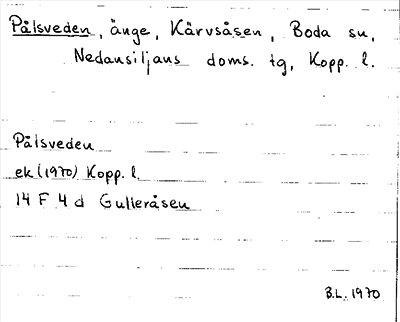 Pålsveden, änge, Kärvsåsen, Boda sn,
Nedansiljans doms. tg, Kopp. l.
Pålsveden
ek (1970) Kopp. l.
14 F 4 d Gulleråsen
B.L. 1970